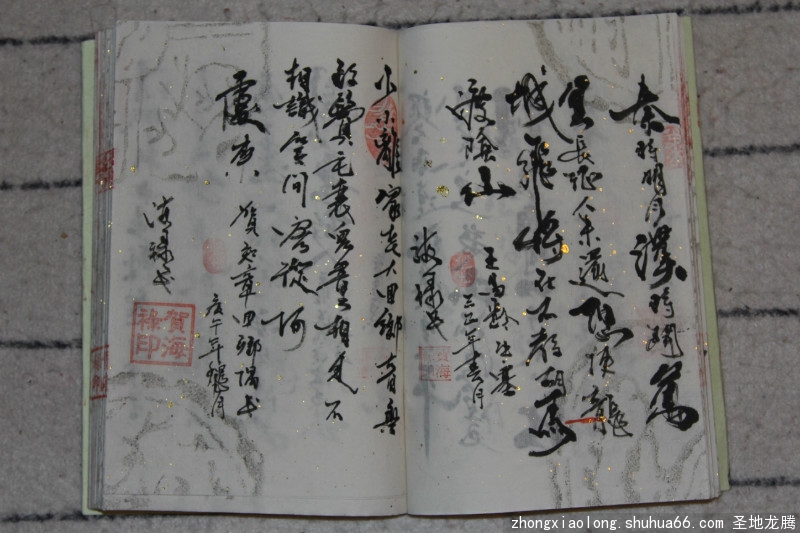 秦時明月漢時關萬
里長征人未還但使龍
城飛將在不教胡馬
渡陰山
王昌齡出塞
年 月
海祿書
少小離家老大回鄉音無
改鬢毛衰兒童相見不
相識笑問客從何
處來
賀知章回鄉偶書
庚午年 月
海祿書
賀海
祿印
zhongxiaolong.shuhua66.com 圣地龙腾